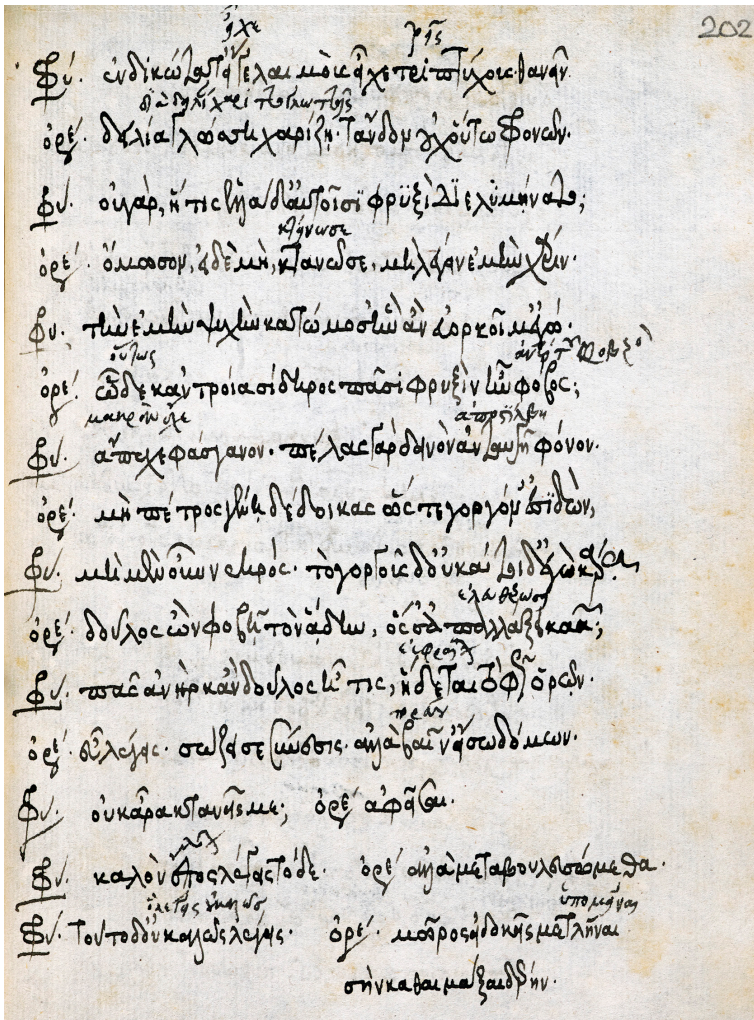 202
οὕτως
Φρύ. ἐνδικώταται· εἴγε λαιμοὺς εἶχε τριπτύχους θανεῖν.
ὀρέ. δειλία γλώσση χαρίζη· τἄνδον οὐχ οὕτω φρονῶν.
Φρύ. οὐ γὰρ, ἥτις ἑλλάδ' αὐτοῖσι φρυξὶ διελυμήνατο;
ὀρέ. ὄμοσον, εἰ δὲ μὴ, κτανῶ σε, μὴ λέγειν ἐμὴν χάριν.
Φρύ. τὴν ἐμὴν ψυχὴν κατώμοσ' ἣν ἂν εὐορκοῖμ' ἐγώ.
ὀρέ. ὧδε κἀν τροία σίδηρος πᾶσι φρυξὶν ἦν φόβος;
Φρύ. ἄπεχε φάσγανον· πέλας γὰρ δεινὸν ἀνταυγεῖ φόνον.
ὀρέ. μὴ πέτρος γένη δέδοικας ὥστε γοργόν' εἰσιδών,
Φρύ. μὴ μὲν οὖν νεκρός· τὸ γοργοῦς δ' οὐ κάτοιδ' ἐγὼ κάρα
ὀρέ. δοῦλος ὢν φοβῇ τὸν ἅδην, ὅς σ' ἀπαλλάξει κακῶν;
Φρύ. πᾶς ἀνὴρ κἂν δοῦλος ᾖ τις, ἥδεται τὸ φῶς ὁρῶν.
πορεύου
ὀρέ. εὖ λέγεις· σώζει σε σύνεσις. ἀλλὰ βαῖν' εἴσω δόμων.
Φρύ. οὐκ ἄρα κτανεῖς με; ὀρέ ἀφεῖσαι.
Φρύ. καλὸν ἔπος λέγεις τόδε. ὀρέ ἀλλὰ μεταβουλευσόμεθα.
ὑπομεῖναι
Φρύ. τοῦτο δ' οὐ καλῶς λέγεις. ὀρέ. μῶρος εἰ δοκεῖς με τλῆναι
σὴν καθαιμάξαι δέρην.